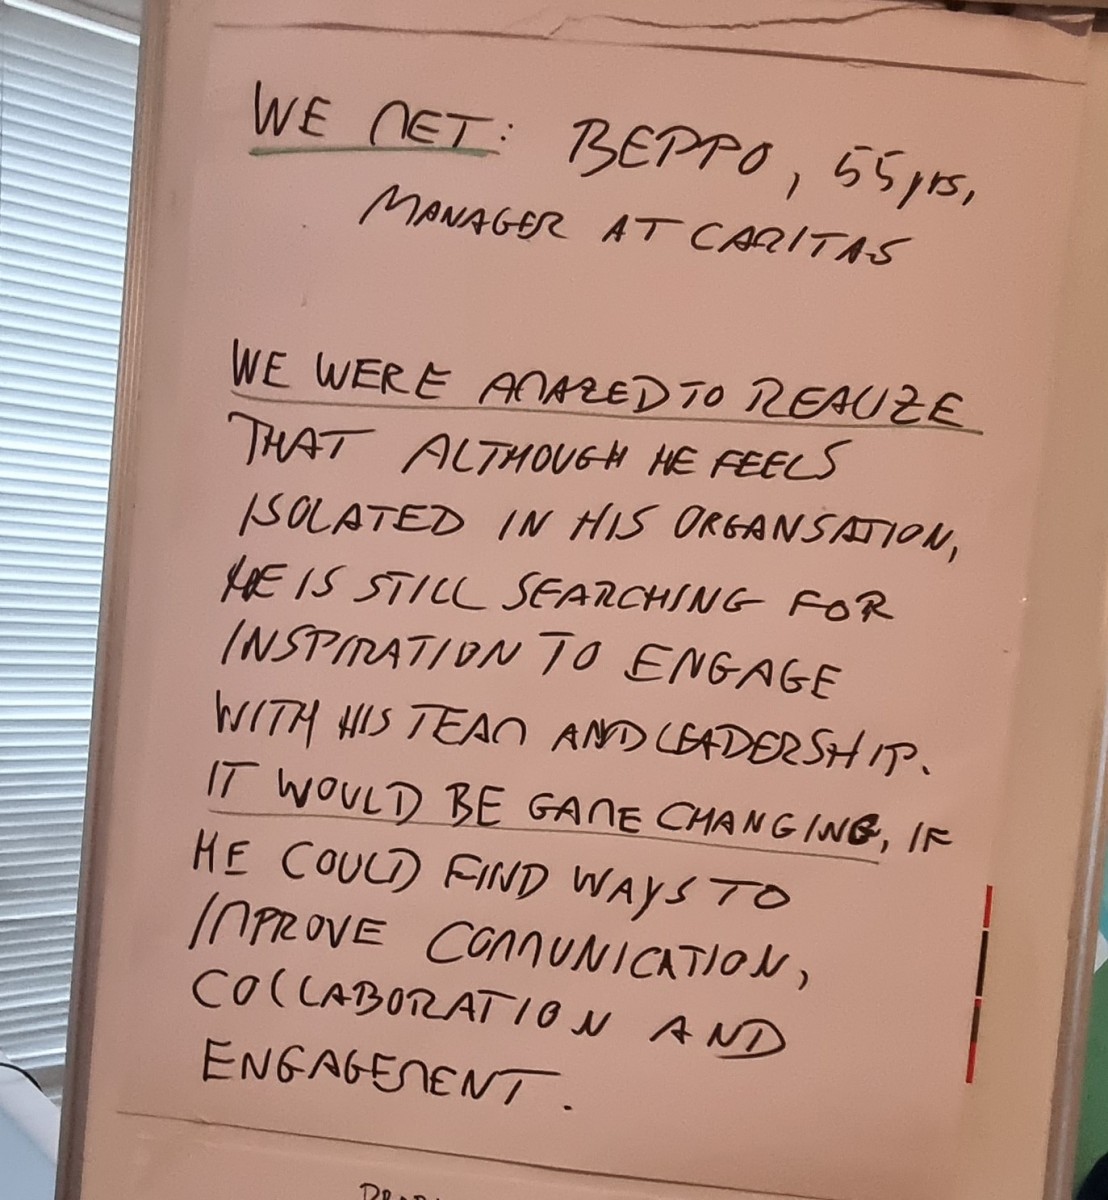 WE MET: BEPPO, 55 yrs,
MANAGER AT CARITAS
WE WERE AMAZED TO REALIZE
THAT ALTHOUGH HE FEELS
ISOLATED IN HIS ORGANSATION,
HE IS STILL SEARCHING FOR
INSPIRATION TO ENGAGE
WITH HIS TEAM AND LEADERSHIP.
IT WOULD BE GAME CHANGING, IF
HE COULD FIND WAYS TO
IMPROVE COMMUNICATION,
COLLABORATION AND
ENGAGEMENT.